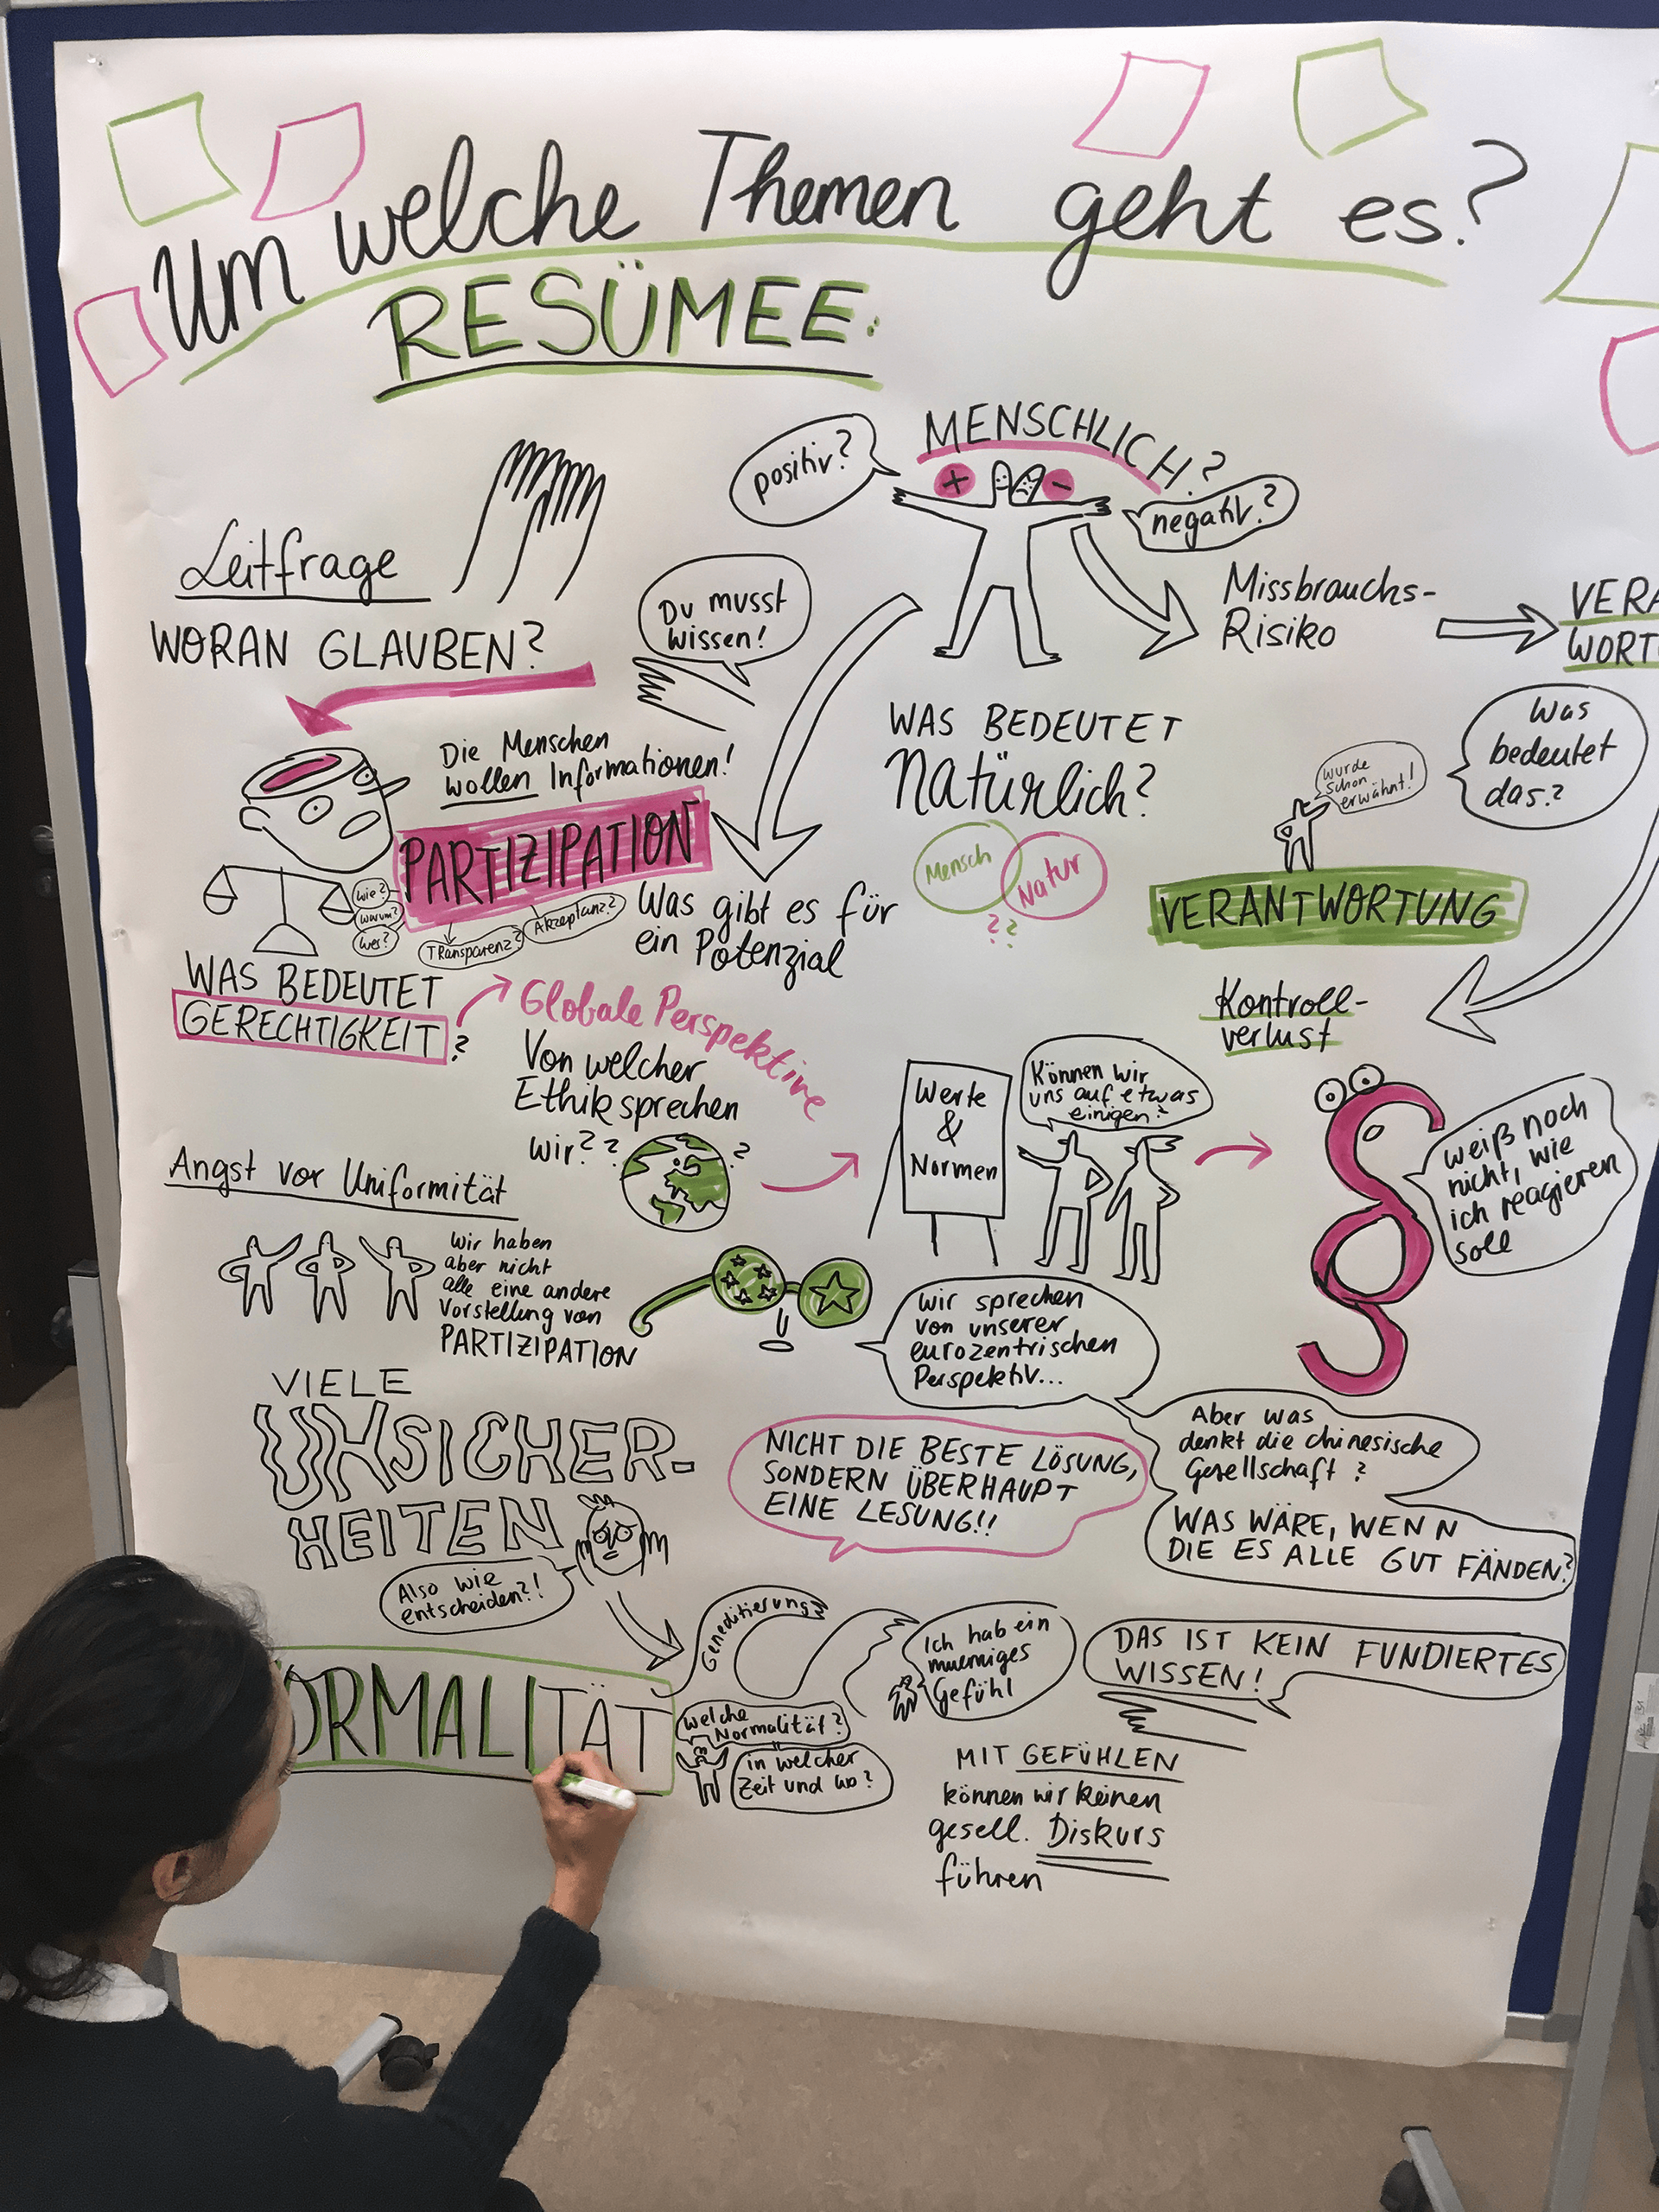 Um welche Themen geht es?
RESÜMEE:
MENSCHLICH?
positiv?
+
-
negativ?
Leitfrage
WORAN GLAUBEN?
Du musst
wissen!
Missbrauchs-
Risiko
VERA
WORT
Die Menschen
wollen Informationen!
PARTIZIPATION
wie?
warum?
wer?
Transparenz?
Akzeptanz?
WAS BEDEUTET
GERECHTIGKEIT?
Was gibt es für
ein Potenzial
WAS BEDEUTET
Natürlich?
Mensch
Natur
??
wurde
schon
erwähnt!
Was
bedeutet
das?
VERANTWORTUNG
Kontroll-
verlust
Globale Perspektive
Von welcher
Ethik sprechen
wir??
?
Werte
&
Normen
Können wir
uns auf etwas
einigen?
§
weiß noch
nicht, wie
ich reagieren
soll
Angst vor Uniformität
wir haben
aber nicht
alle eine andere
Vorstellung von
PARTIZIPATION
wir sprechen
von unserer
eurozentrischen
Perspektiv...
Aber was
denkt die chinesische
Gesellschaft?
WAS WÄRE, WENN
DIE ES ALLE GUT FÄNDEN?
VIELE
UNSICHER-
HEITEN
Also wie
entscheiden?!
NICHT DIE BESTE LÖSUNG,
SONDERN ÜBERHAUPT
EINE LESUNG!!
ORMALITÄT
Geneditierung?
welche
Normalität?
in welcher
Zeit und wo?
Ich hab ein
mulmiges
Gefühl
DAS IST KEIN FUNDIERTES
WISSEN!
MIT GEFÜHLEN
können wir keinen
gesell. Diskurs
führen